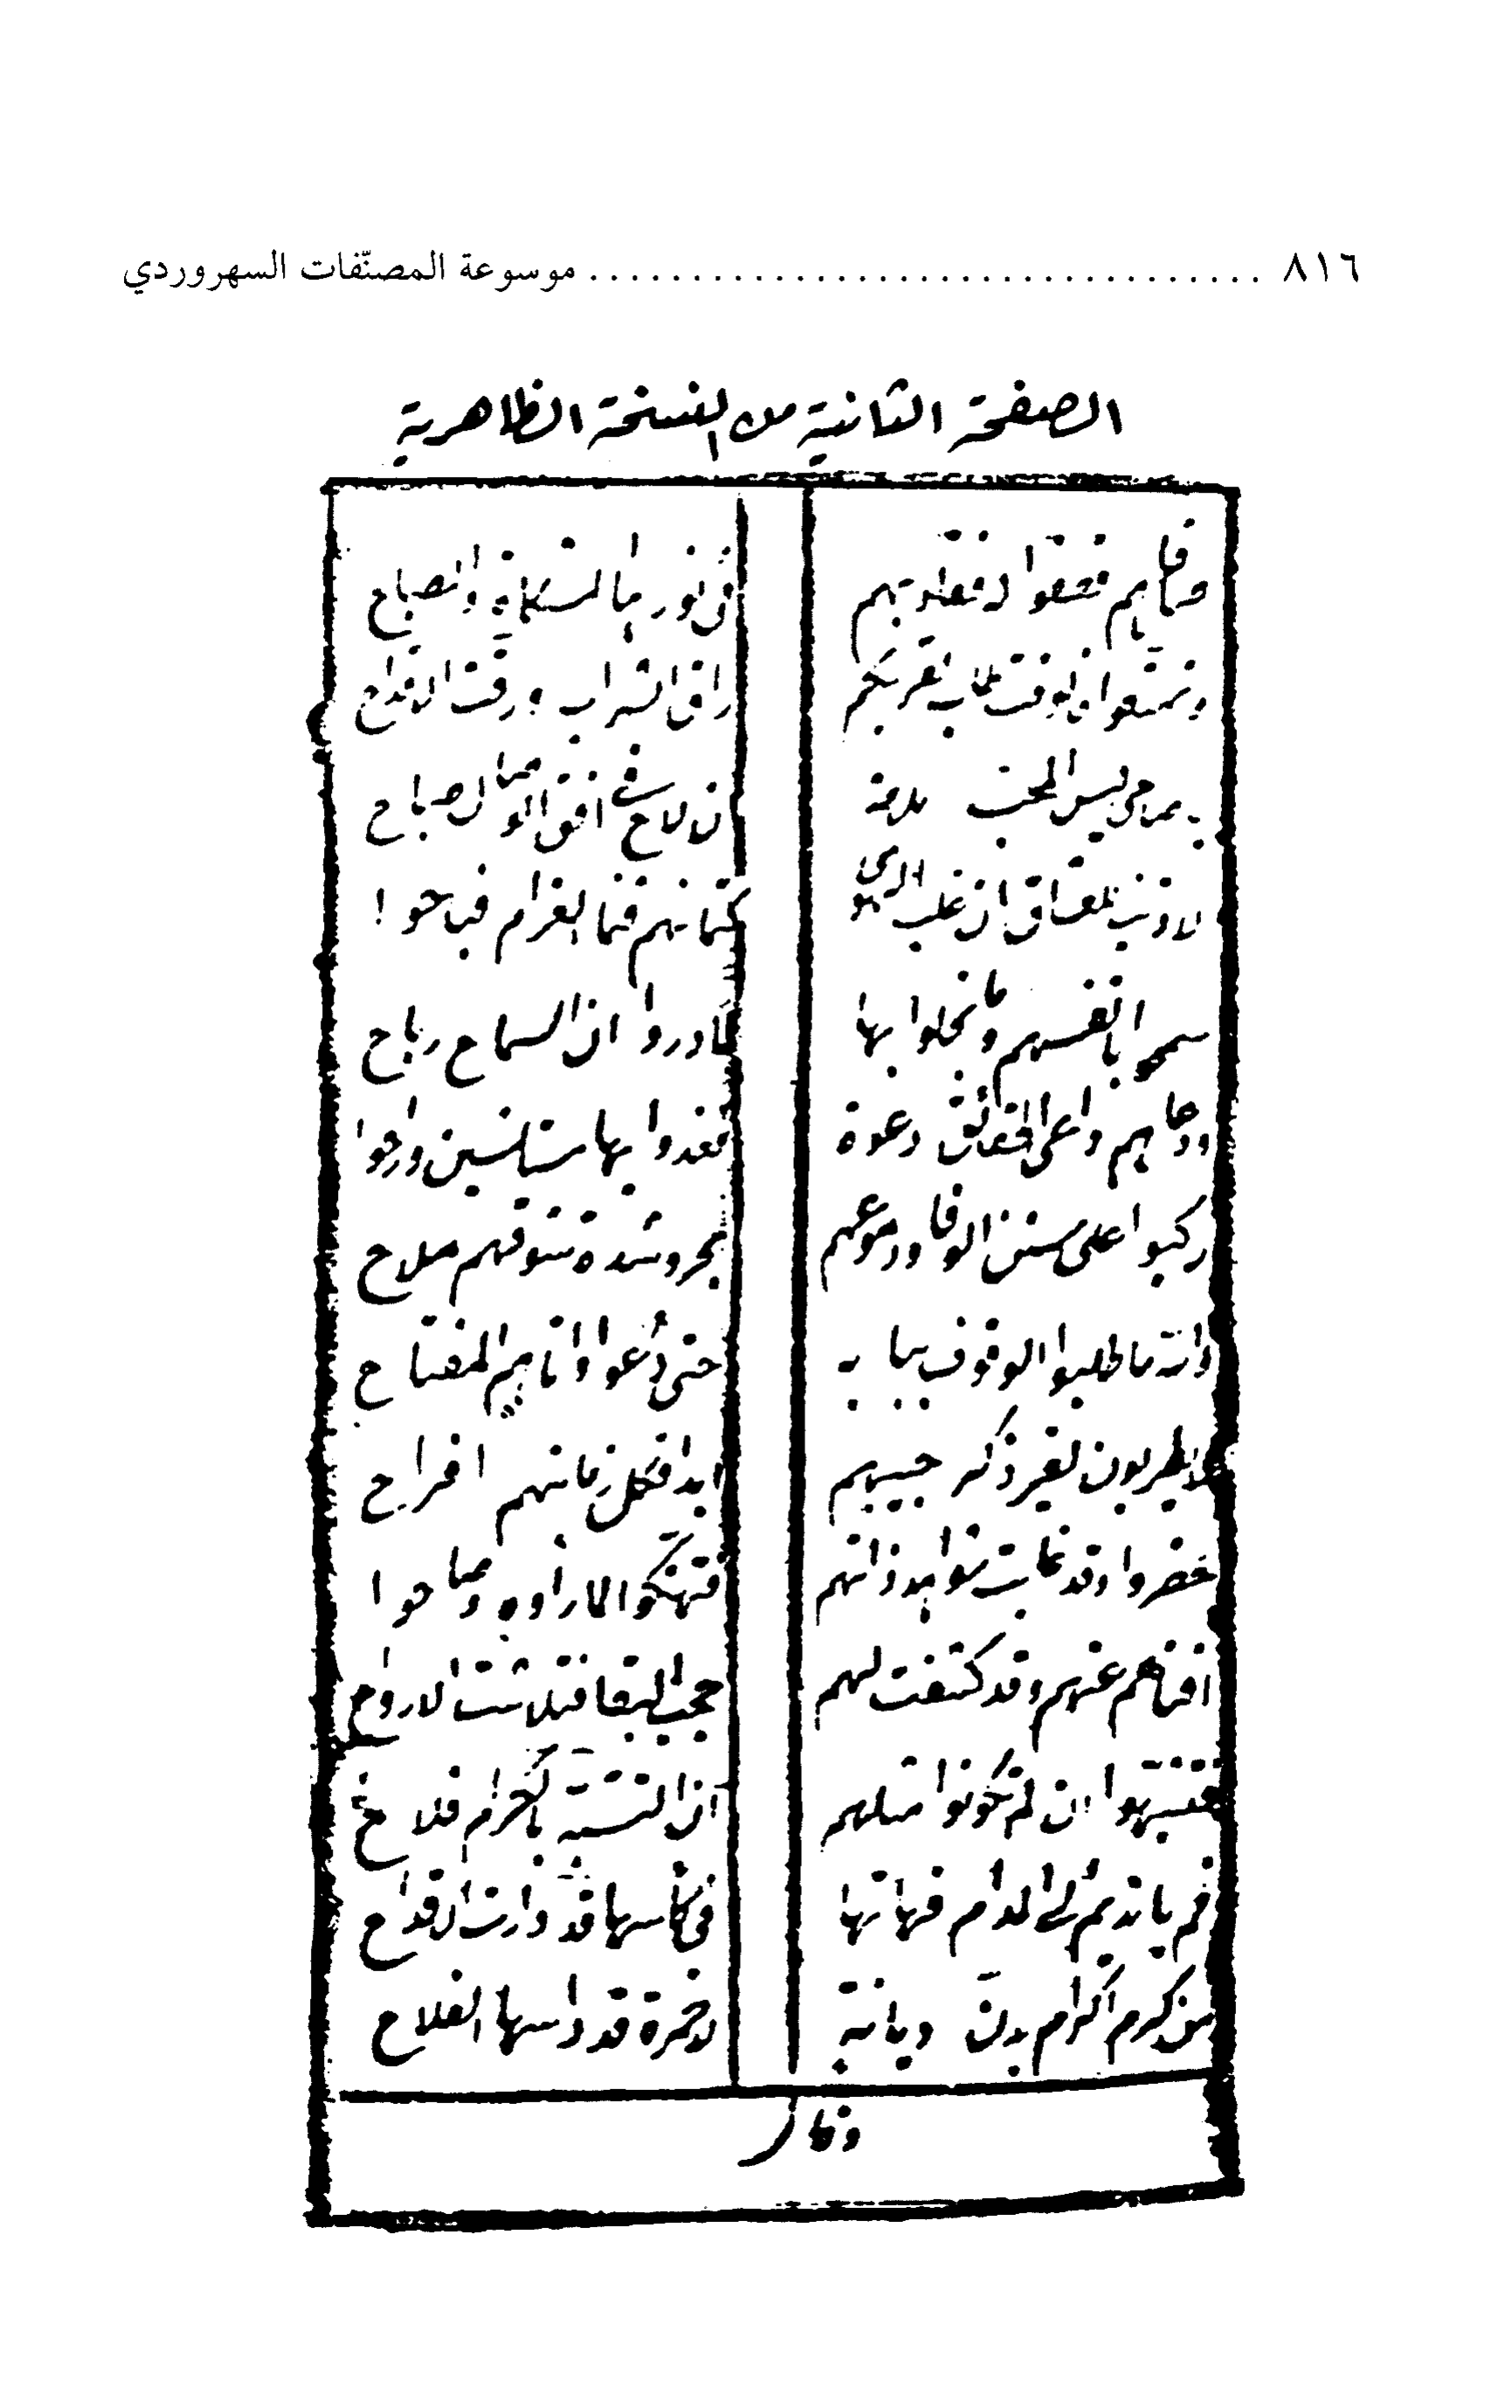 ٨١٦ .................................. موسوعة المصنّفات السهروردي
الصفحة الثانية من النسخة الظاهرية
وصافاهم فصفوا له فقلوبهم في نورها المشكاة والمصباح
وتمتعوا فالوقت طاب بقربكم راق الشراب ورقت الاقداح
يا صاح ليس المحب ملامة ان لاح في افق الوصال صباح
لا ذنب للعشاق ان غلب الهوى كتمانهم فنما الغرام فباحوا
سمحوا بانفسهم وما بخلوا بها لما دروا ان السماح رباح
ودعاهم داعى الحقائق دعوة فغدوا بها مستانسين وراحوا
ركبوا على سنن الوفا ودموعهم بحر وشدة شوقهم ملاح
والله ما طلبوا الوقوف ببابه حتى دُعوا واتاهم المفتاح
لا يطربون لغير ذكر حبيبهم ابدا فكل زمانهم افراح
حضروا وقد غابت شواهد ذاتهم فتهتكوا لما راوه وصاحوا
افناهم عنهم وقد كشفت لهم حجب البقا فتلاشت الارواح
فتشبهوا ان لم تكونوا مثلهم ان التشبه بالكرام فلاح
قم يا نديم الى المدام فهاتها في كأسها قد دارت الاقداح
من كرم اكرام بدن ديانة لا خمرة قد داسها الفلاح
وقال